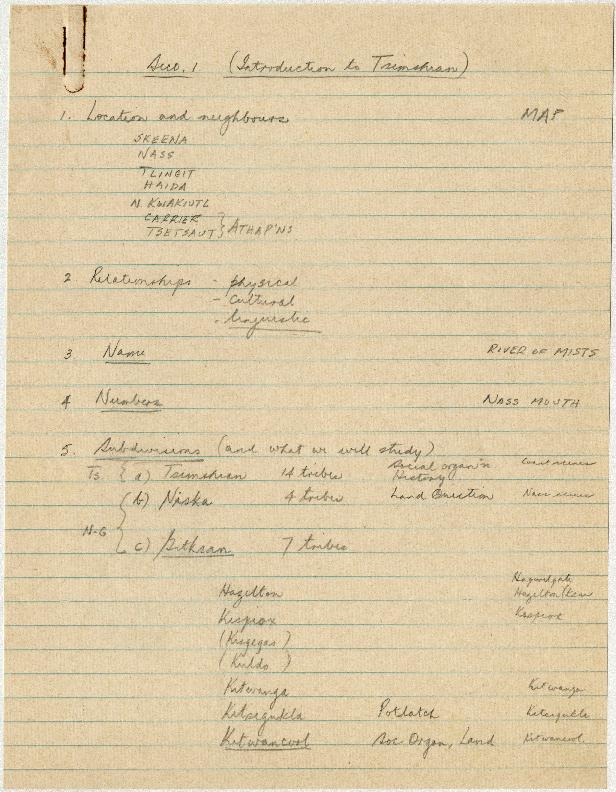 Sec. 1 (Introduction to Tsimshian)
1. Location and neighbours MAP
SKEENA
NASS
TLINGIT
HAIDA
N. KWAKIUTL
CARRIER
TSETSAUT } ATHAP'NS
2 Relationships - physical
- cultural
- linguistic
3 Name RIVER OF MISTS
4 Numbers NASS MOUTH
5. Subdivisions (and what we will study)
Ts { a) Tsimshian 14 tribes Social organ'n
History
{ b) Niska 4 tribes Land Question Nass
N-G
c) Gitksan 7 tribes
Hagwilgate
Hazelton Hazelton
Kispiox Kispiox
(Kisgegas)
(Kuldo)
Kitwanga Kitwanga
Kitsegukla Potlatch Kitsegukla
Kitwancool Soc Organ, Land Kitwancool